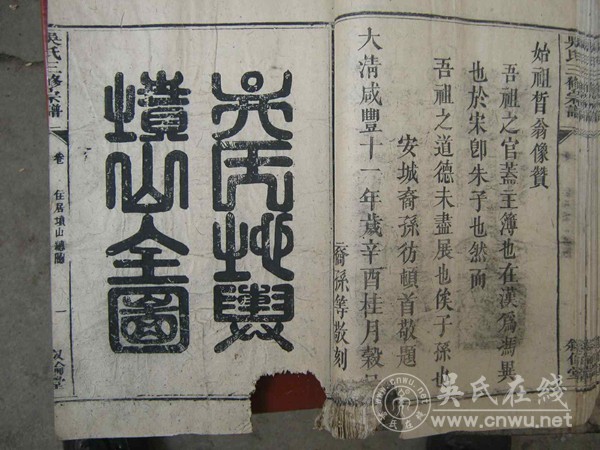 始祖晢翁像贊
吾祖之官蓋主簿也在漢爲馮異
也於宋卽朱子也然而
吾祖之道德未盡展也俟子孫也
安城裔孫彷頓首敬題
大清咸豐十一年歲辛酉桂月穀
裔孫等敬刻
吳氏地輿
墳山全圖
吳氏三修宗譜
卷
住居墳山總圖
一
敘倫堂
吳氏在线
www.cnwu.net